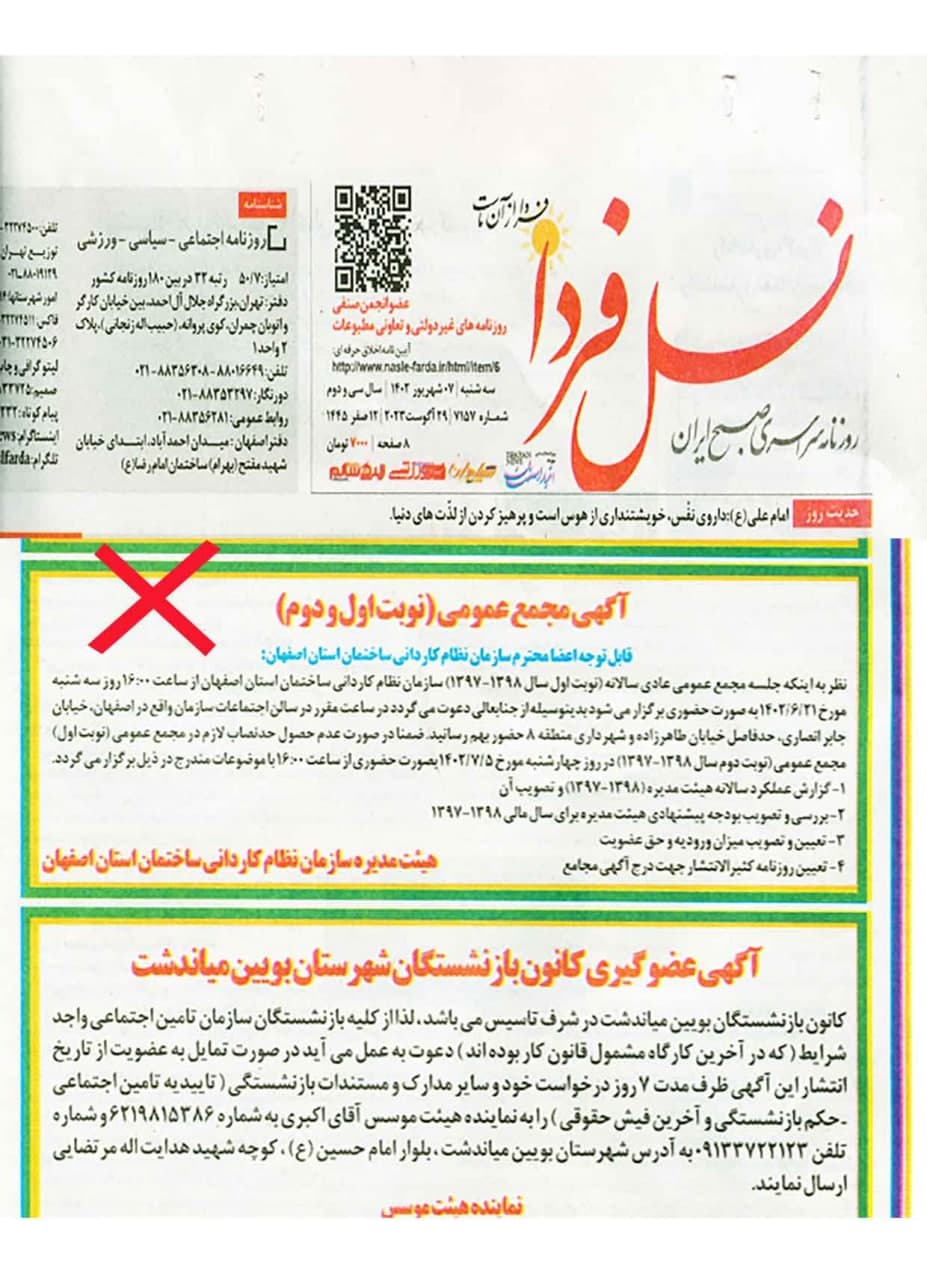 فردا از آن ماست
نسل فردا
روزنامه سراسری صبح ایران
عضو انجمن صنفی
روزنامه های غیر دولتی و تعاونی مطبوعات
آیین نامه اخلاق حرفه ای:
http://www.nasle-farda.ir/html/item/6
سه شنبه | ۰۷ شهریور ۱۴۰۲ | سال سی و دوم
شماره ۷۱۵۷ | ۲۹ آگوست ۲۰۲۳ | ۱۲ صفر ۱۴۴۵
۸ صفحه | ۷۰۰۰ تومان
شناسنامه
روزنامه اجتماعی - سیاسی - ورزشی
امتیاز: ۵۰/۷ رتبه ۳۲ در بین ۱۸۰ روزنامه کشور
دفتر: تهران، بزرگراه جلال آل احمد، بین خیابان کارگر
و اتوبان چمران، کوی پروانه، (حبیب اله زنجانی)، پلاک
۲ واحد ۱
تلفن: ۸۸۰۱۶۶۴۹ - ۸۸۳۵۶۳۰۸-۰۲۱
دورنگار: ۸۸۳۵۳۲۹۷-۰۲۱
روابط عمومی: ۸۸۳۵۶۲۸۱-۰۲۱
دفتر اصفهان: میدان احمدآباد، ابتدای خیابان
شهید مفتح (بهرام) ساختمان امام رضا(ع)
تلفن: ۳۲۲۷۴۵۰۰-
توزیع تهران
۸۸۰۱۹۱۲۹-۰۲۱
امور شهرستانها:
فاکس: ۳۲۲۷۴۵۱۱
۰۳۱-۳۲۲۷۴۵۰۶
لیتوگرافی و چاپ
صمیم:
پیام کوتاه:
اینستاگرام:
تلگرام:
حدیث روز
امام علی (ع): داروی نفْس، خویشتنداری از هوس است و پرهیز کردن از لذّت های دنیا.
آگهی مجمع عمومی (نوبت اول و دوم)
قابل توجه اعضا محترم سازمان نظام کاردانی ساختمان استان اصفهان:
نظر به اینکه جلسه مجمع عمومی عادی سالانه (نوبت اول سال ۱۳۹۸-۱۳۹۷) سازمان نظام کاردانی ساختمان استان اصفهان از ساعت ۱۶:۰۰ روز سه شنبه
مورخ ۱۴۰۲/۶/۲۱ به صورت حضوری برگزار می شود بدینوسیله از جنابعالی دعوت می گردد در ساعت مقرر در سالن اجتماعات سازمان واقع در اصفهان، خیابان
جابر انصاری، حدفاصل خیابان طاهرزاده و شهرداری منطقه ۸ حضور بهم رسانید. ضمنا در صورت عدم حصول حدنصاب لازم در مجمع عمومی (نوبت اول)
مجمع عمومی (نوبت دوم سال ۱۳۹۸-۱۳۹۷) در روز چهارشنبه مورخ ۱۴۰۲/۷/۵ بصورت حضوری از ساعت ۱۶:۰۰ با موضوعات مندرج در ذیل برگزار می گردد.
۱- گزارش عملکرد سالانه هیئت مدیره (۱۳۹۸-۱۳۹۷) و تصویب آن
۲- بررسی و تصویب بودجه پیشنهادی هیئت مدیره برای سال مالی ۱۳۹۸-۱۳۹۷
۳- تعیین و تصویب میزان ورودیه و حق عضویت
۴- تعیین روزنامه کثیرالانتشار جهت درج آگهی مجامع
هیئت مدیره سازمان نظام کاردانی ساختمان استان اصفهان
آگهی عضو گیری کانون بازنشستگان شهرستان بویین میاندشت
کانون بازنشستگان بویین میاندشت در شرف تاسیس می باشد، لذا از کلیه بازنشستگان سازمان تامین اجتماعی واجد
شرایط ( که در آخرین کارگاه مشمول قانون کار بوده اند ) دعوت به عمل می آید در صورت تمایل به عضویت از تاریخ
انتشار این آگهی ظرف مدت ۷ روز درخواست خود و سایر مدارک و مستندات بازنشستگی ( تاییدیه تامین اجتماعی
-حکم بازنشستگی و آخرین فیش حقوقی ) را به نماینده هیئت موسس آقای اکبری به شماره ۶۲۱۹۸۱۵۳۸۶ و شماره
تلفن ۰۹۱۳۳۷۲۲۱۲۳ به آدرس شهرستان بویین میاندشت ، بلوار امام حسین (ع) ، کوچه شهید هدایت اله مرتضایی
ارسال نمایند.
نماینده هیئت موسس